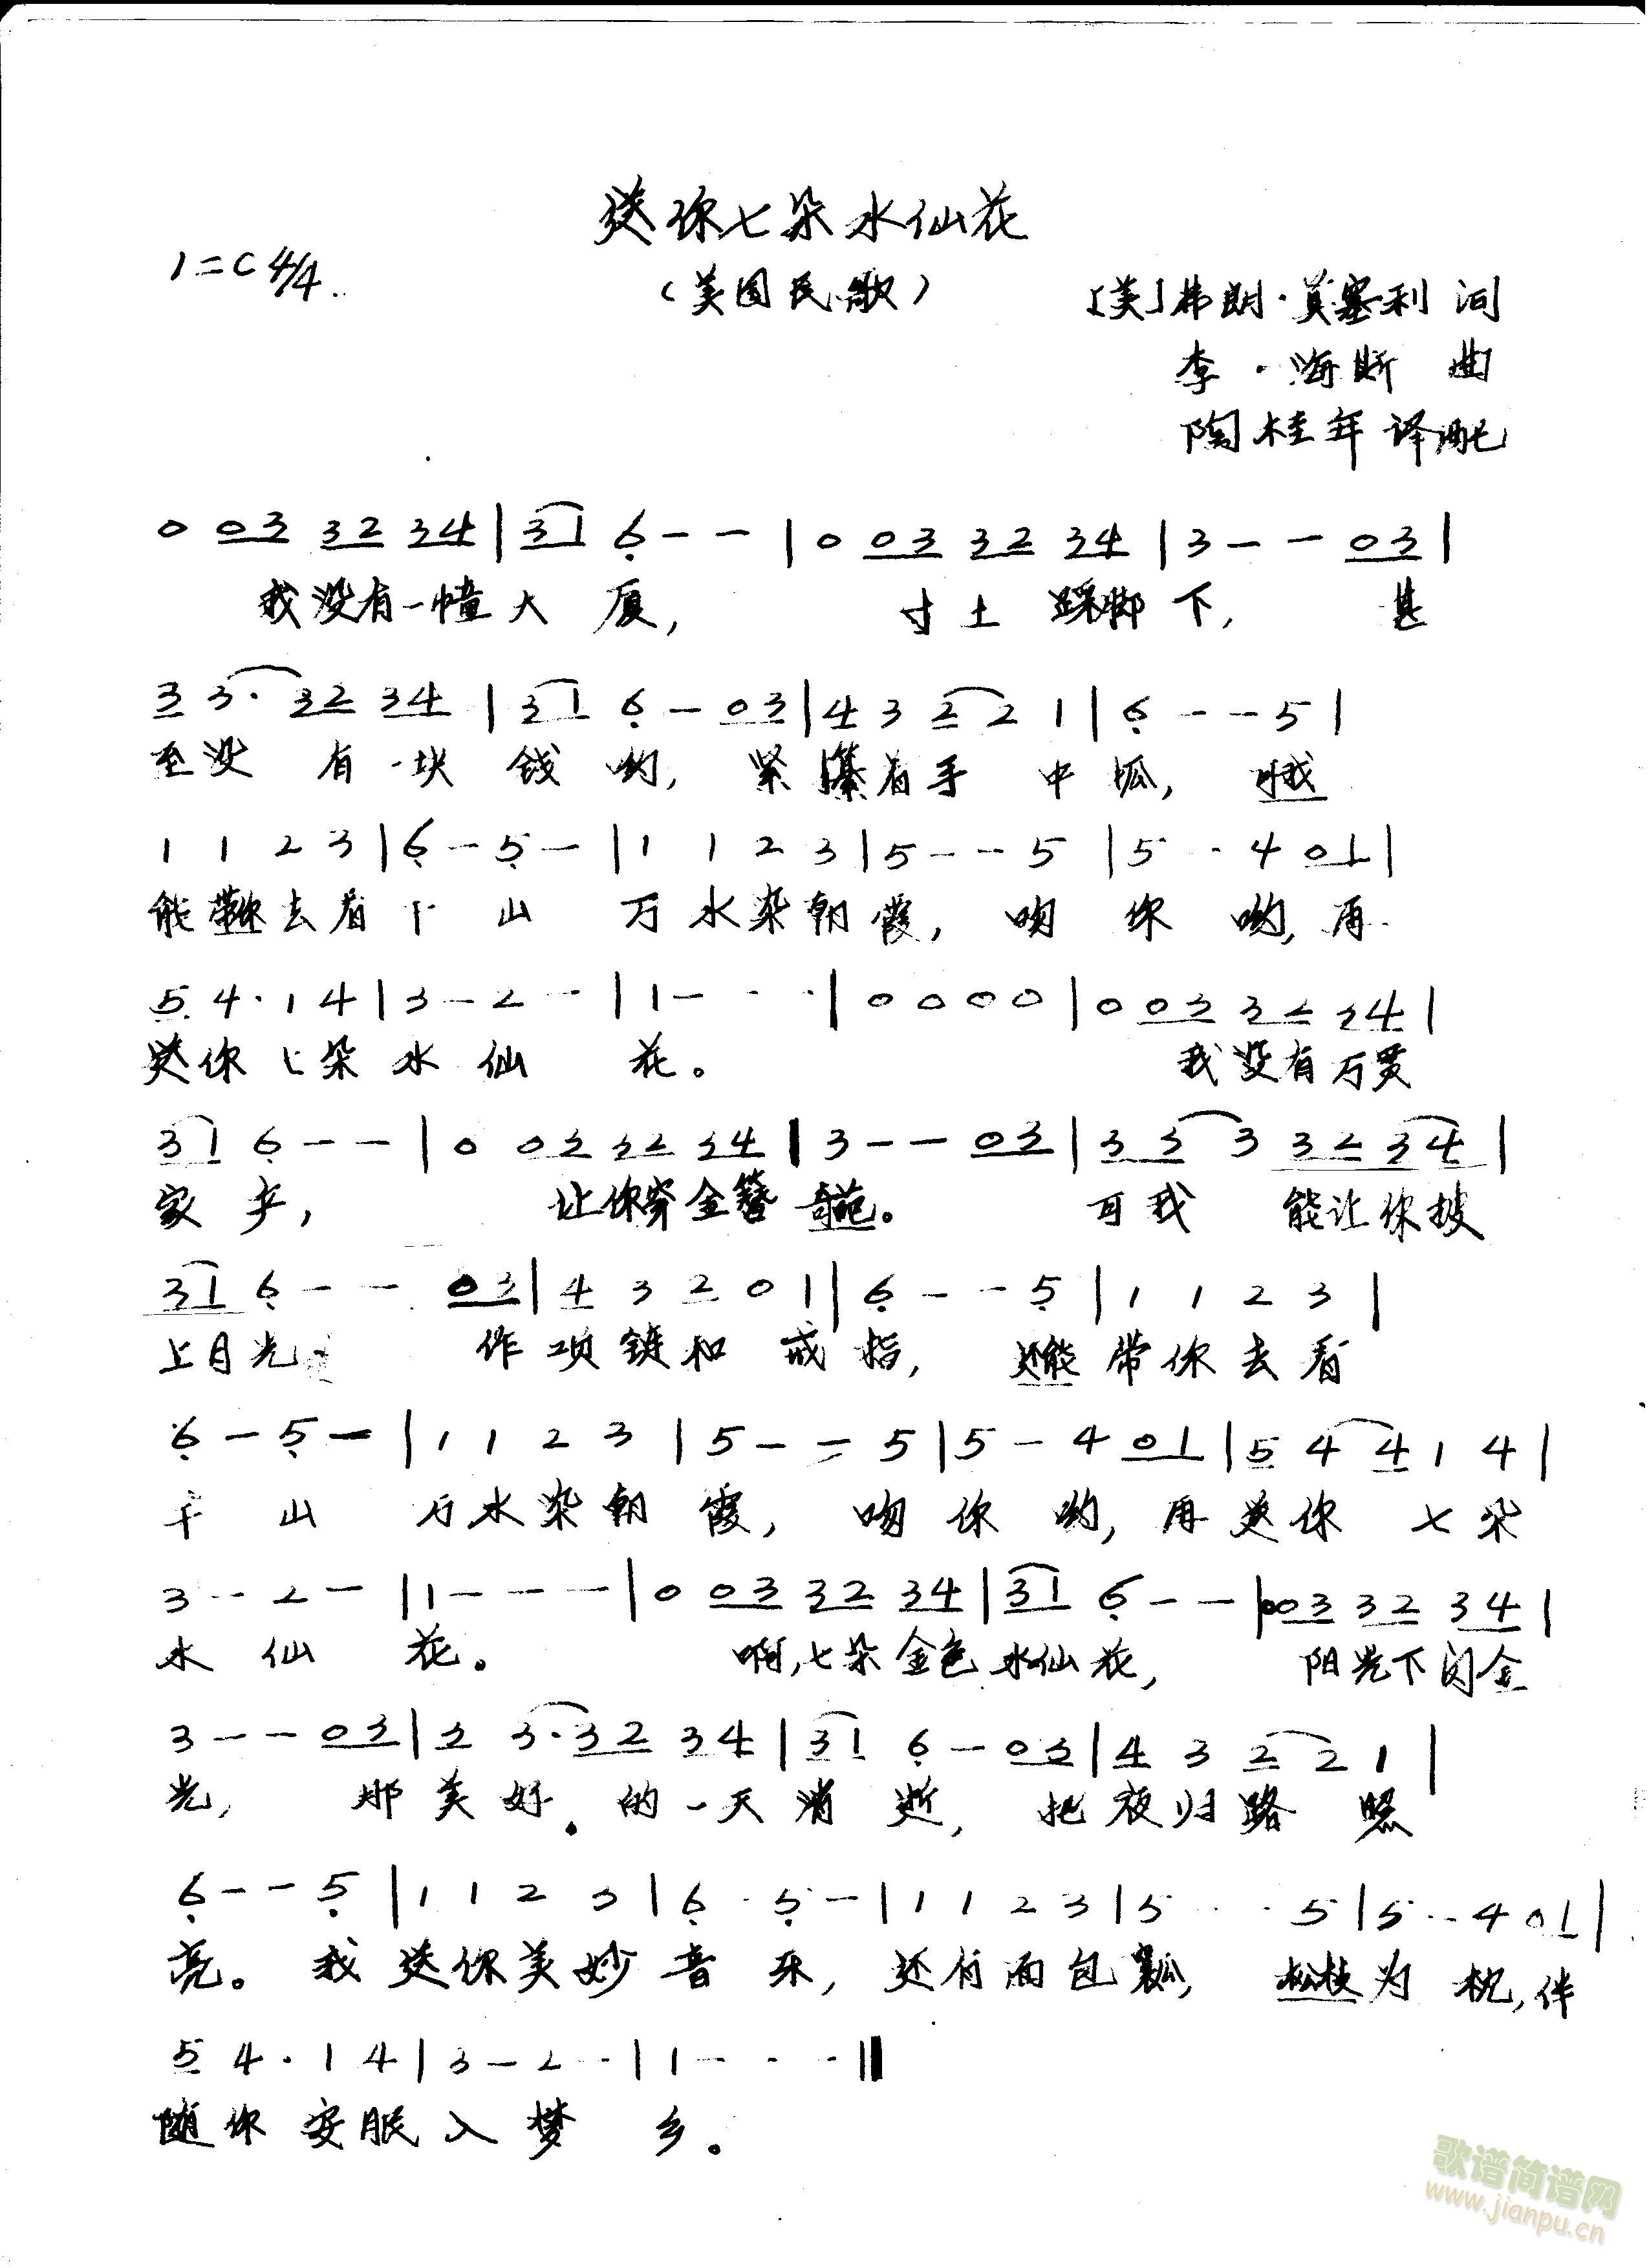 送你七朵水仙花
1=C 4/4
(美国民歌)
[美]弗朗·莫塞利 词
李·海斯 曲
陶桂年 译配
0 03 32 34 | 31 6 - - | 0 03 32 34 | 3 - - 03 |
我没有一幢大厦, 寸土踩脚下, 甚
3 3· 32 34 | 31 6 - 03 | 4 3 2 2 1 | 6 - - 5 |
至没有一块钱哟, 紧攥着手中抓, 可我
1 1 2 3 | 6 - 5 - | 1 1 2 3 | 5 - - 5 | 5 - 4 01 |
能带你去看千山万水染朝霞, 吻你哟, 再
5 4· 1 4 | 3 - 2 - | 1 - - - | 0 0 0 0 | 0 03 32 34 |
送你七朵水仙花。 我没有万贯
31 6 - - | 0 03 32 34 | 3 - - 03 | 33 3 32 34 |
家产, 让你穿金簪奇葩。 可我能让你披
31 6 - - 03 | 4 3 2 0 1 | 6 - - 5 | 1 1 2 3 |
上月光 作项链和戒指, 还能带你去看
6 - 5 - | 1 1 2 3 | 5 - - 5 | 5 - 4 01 | 5 4 4 1 4 |
千山万水染朝霞, 吻你哟, 再送你七朵
3 - 2 - | 1 - - - | 0 03 32 34 | 31 6 - - | 003 32 34 |
水仙花。 啊,七朵金色水仙花, 阳光下闪金
3 - - 03 | 3 3· 32 34 | 31 6 - 03 | 4 3 2 2 1 |
光, 那美好的一天消逝, 把夜归路照
6 - - 5 | 1 1 2 3 | 6 - 5 - | 1 1 2 3 | 5 - - 5 | 5 - 4 01 |
亮。我送你美妙音乐, 还有面包瓤, 松枝为枕, 伴
5 4· 1 4 | 3 - 2 - | 1 - - - ‖
随你安眠入梦乡。
歌谱简谱网
www.jianpu.cn